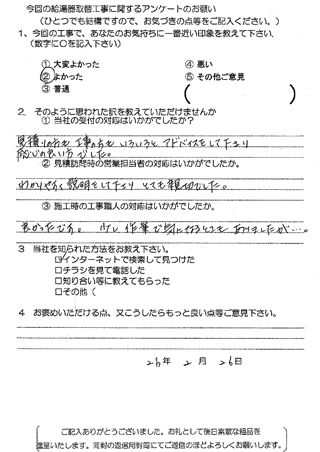 今回の給湯器取替工事に関するアンケートのお願い
（ひとつでも結構ですので、お気づきの点等をご記入ください。）
1、今回の工事で、あなたのお気持ちに一番近い印象を教えて下さい。
（数字に○を記入下さい）
① 大変よかった ④ 悪い
② よかった ⑤ その他ご意見
③ 普通 （ ）
2. そのように思われた訳を教えていただけませんか
① 当社の受付の対応はいかがでしたか？
見積りの方も工事の方もいろいろと アドバイスをして下さり
感じの良い方でした。
② 見積訪問時の営業担当者の対応はいかがでしたか。
わかりやすく説明をして下さり とても親切でした。
③ 施工時の工事職人の対応はいかがでしたか。
良かったです。 少し作業で気になることもありましたが…。
3 当社を知られた方法をお教え下さい。
☑インターネットで検索して見つけた
□チラシを見て電話した
□知り合い等に教えてもらった
□その他（
4 お褒めいただける点、又こうしたらもっと良い点等ご意見下さい。
26年 2月 26日
ご記入ありがとうございました。お礼として後日素敵な粗品を
進呈いたします。同封の返信用封筒にてご返信のほどよろしくお願いします。